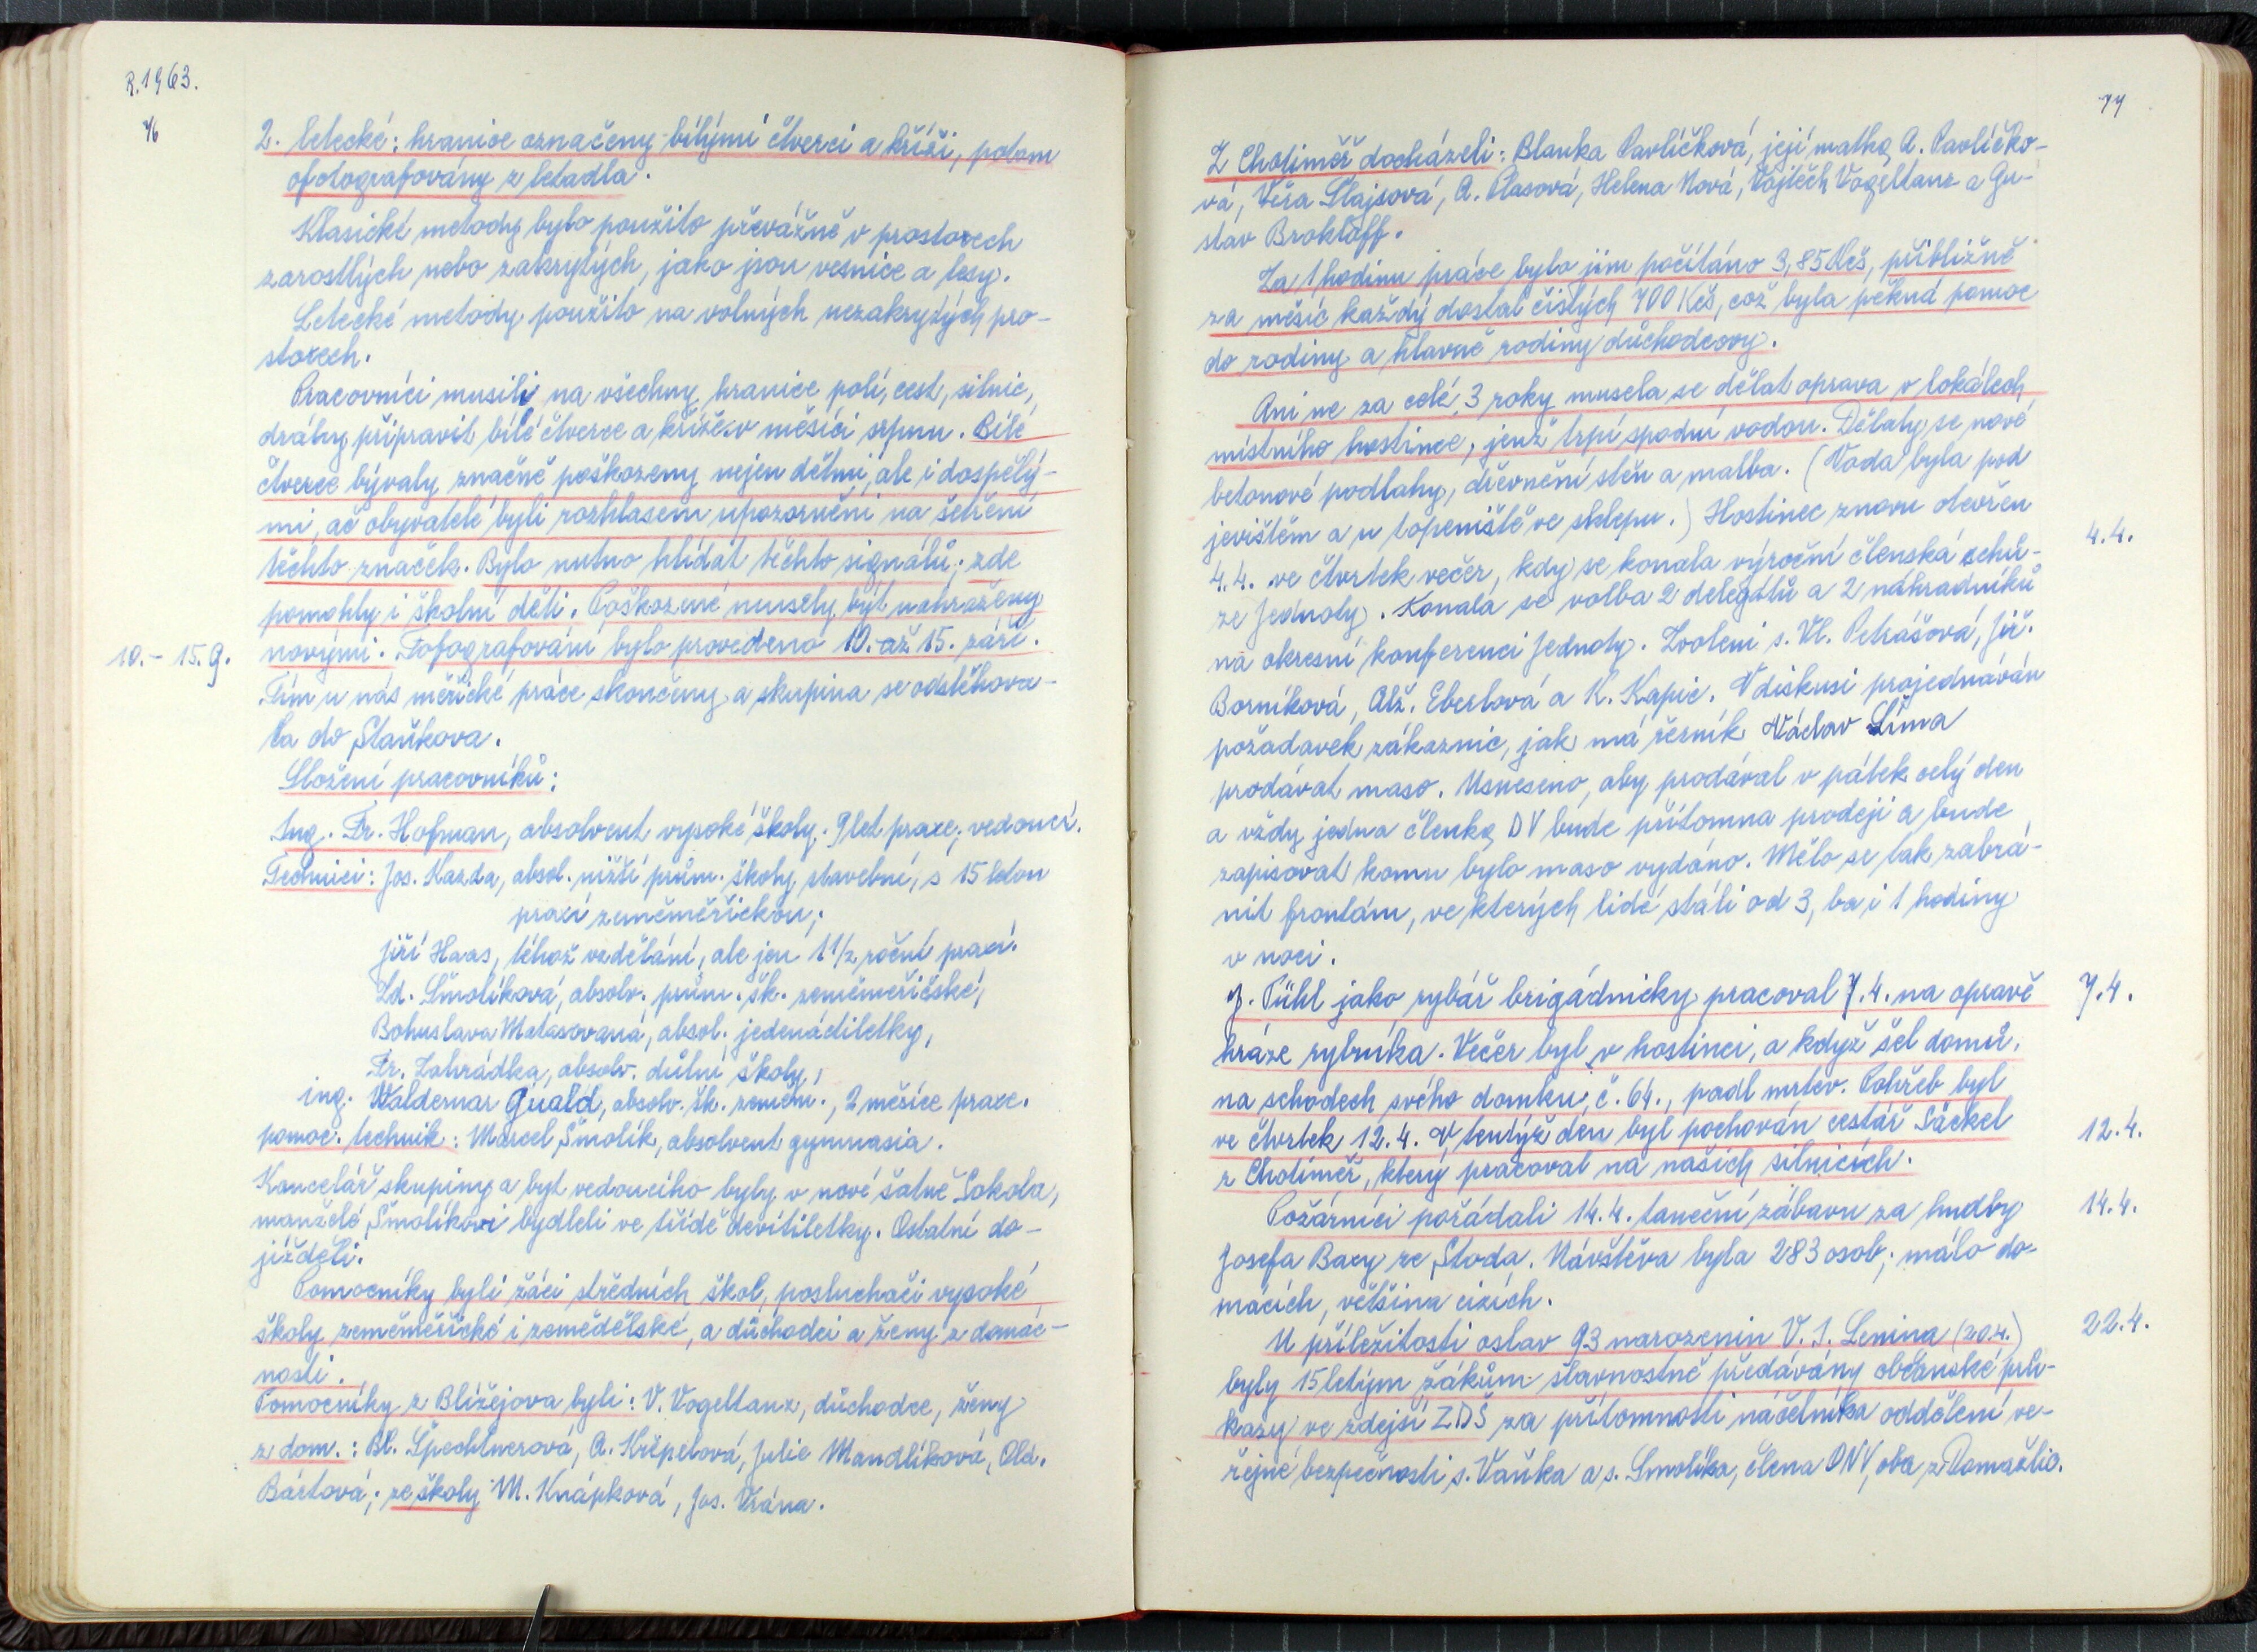 R. 1963.
76
2. letecké: hranice označeny bílými čtverci a kříži, potom
ofotografovány z letadla.
Klasické metody bylo použito převážně v prostorech
zarostlých nebo zakrytých, jako jsou vesnice a lesy.
Letecké metody použito na volných nezakrytých pro-
storech.
Pracovníci musili na všechny hranice polí, cest, silnic,
dráhy připravit bílé čtverce a kříže v měsíci srpnu. Bílé
čtverce bývaly značně poškozeny nejen dětmi, ale i dospělý-
mi, ač obyvatelé byli rozhlasem upozorněni na šetření
těchto značek. Bylo nutno hlídat těchto signálů; zde
pomohly i školní děti. Poškozené musely být nahraženy
novými. Fofografování bylo provedeno 10. až 15. září.
10. - 15. 9.
Tím u nás měřické práce skončeny a skupina se odstěhova-
la do Staňkova.
Složení pracovníků:
Ing. Fr. Hofman, absolvent vysoké školy; 9 let praxe; vedoucí.
Technici: Jos. Kazda, absol. nižší prům. školy stavební, s 15 letou
praxí zeměměřickou;
Jiří Haas, téhož vzdělání, ale jen 1 1/2 roční praxí.
Zd. Šmolíková, absolv. prům. šk. zeměměřičské,
Bohuslava Matasovaná, absol. jedenáctiletky,
Fr. Zahrádka, absolv. důlní školy,
ing. Waldemar Guald, absolv. šk. zeměm., 2 měsíce praxe.
pomoc. technik: Marcel Šmolík, absolvent gymnasia.
Kancelář skupiny a byt vedoucího byly v nové šatně Sokola,
manželé Šmolíkovi bydleli ve třídě devítiletky. Ostatní do-
jížděli.
Pomocníky byli žáci středních škol, posluchači vysoké
školy zeměměřické i zemědělské, a důchodci a ženy z domác-
nosti.
Pomocníky z Blížejova byli: V. Vogeltanz, důchodce, ženy
z dom.: Bl. Špechtnerová, A. Křepelová, Julie Mandlíková, Old.
Bártová; ze školy M. Knápková, Jos. Vrána.
77
Z Chotiměř docházeli: Blanka Pavlíčková, její matka A. Pavlíčko-
vá, Věra Šlajsová, A. Plasová, Helena Nová, Vojtěch Vogeltanz a Gu-
stav Brokloff.
Za 1 hodinu práce bylo jim počítáno 3,85 Kčs, přibližně
za měsíc každý dostal čistých 700 Kčs, což byla pěkná pomoc
do rodiny a hlavně rodiny důchodcovy.
Ani ne za celé 3 roky musela se dělat oprava v lokálech
místního hostince, jenž trpí spodní vodou. Dělaly se nové
betonové podlahy, dřevnění stěn a malba. (Voda byla pod
jevištěm a u topeniště ve sklepu.) Hostinec znovu otevřen
4.4.
4.4. ve čtvrtek večer, kdy se konala výroční členská schů-
ze Jednoty. Konala se volba 2 delegátů a 2 náhradníků
na okresní konferenci Jednoty. Zvoleni s. Vl. Petrášová, Jiř.
Borníková, Alž. Eberlová a K. Kapic. V diskusi projednáván
požadavek zákaznic, jak má řezník Václav Síma
prodávat maso. Usneseno, aby prodával v pátek celý den
a vždy jedna členka DV bude přítomna prodeji a bude
zapisovat komu bylo maso vydáno. Mělo se tak zabrá-
nit frontám, ve kterých lidé stáli od 3, ba i 1 hodiny
v noci.
J. Tühl jako rybář brigádnicky pracoval 7.4. na opravě
7.4.
hráze rybníka. Večer byl v hostinci, a když šel domů,
na schodech svého domku, č. 64., padl mrtev. Pohřeb byl
ve čtvrtek 12.4. V tentýž den byl pochován cestář Säckel
12.4.
z Chotiměř, který pracoval na našich silnicích.
Požárníci pořádali 14.4. taneční zábavu za hudby
14.4.
Josefa Baxy ze Stoda. Návštěva byla 283 osob; málo do-
mácích, většina cizích.
U příležitosti oslav 93 narozenin V. I. Lenina (20.4.)
22.4.
byly 15letým žákům slavnostně předávány občanské prů-
kazy ve zdejší ZDŠ za přítomnosti náčelníka oddělení ve-
řejné bezpečnosti s. Vaňka a s. Smolíka, člena ONV, oba z Domažlic.